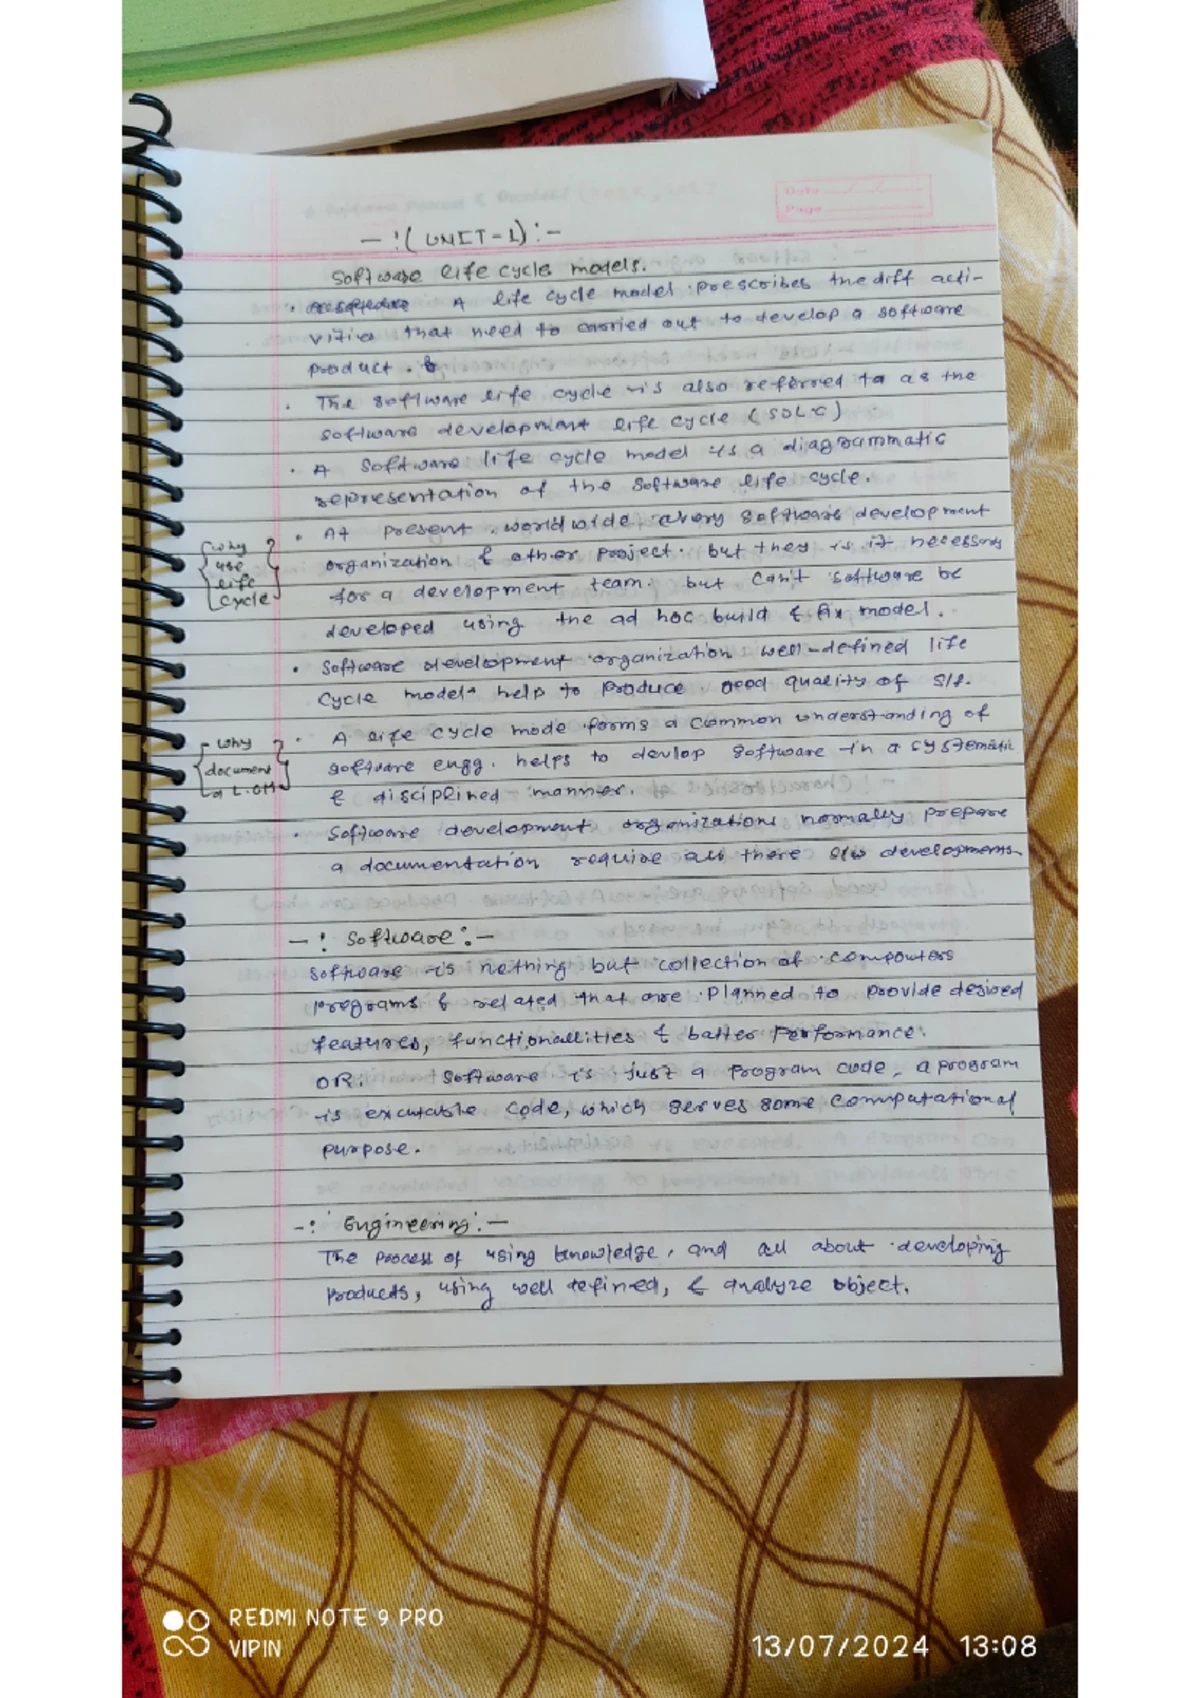 Date
Page
- :( UNIT-1) :-
Software life cycle models.
. A life cycle model prescribes the diff acti-
vities that need to carried out to develop a software
product.
. The software life cycle is also referred to as the
software development life cycle (SDLC)
. A Software life cycle model is a diagrammatic
representation of the software life cycle.
. At present, worldwide every software development
organization & other project. but they is it necessary
for a development team. but can't software be
developed using the ad hoc build & fix model.
{ why use life cycle }
. Software development organization well-defined life
cycle model help to produce good quality of S/w.
. A life cycle mode forms a common understanding of
software engg. helps to devlop software in a systematic
& disciplined manner.
{ why document a
. Software development organizations normally prepare
a documentation require all there S/w developments
- : Software :-
Software is nothing but collection of computers
programs & related that are planned to provide desired
features, functionallities & batter performance.
OR: Software is just a program code, a program
is excutable code, which serves some computational
purpose.
- : Engineering :-
The process of using knowledge, and all about developing
products, using well defined, & analyze object.
REDMI NOTE 9 PRO
VIPIN
13/07/2024 13:08